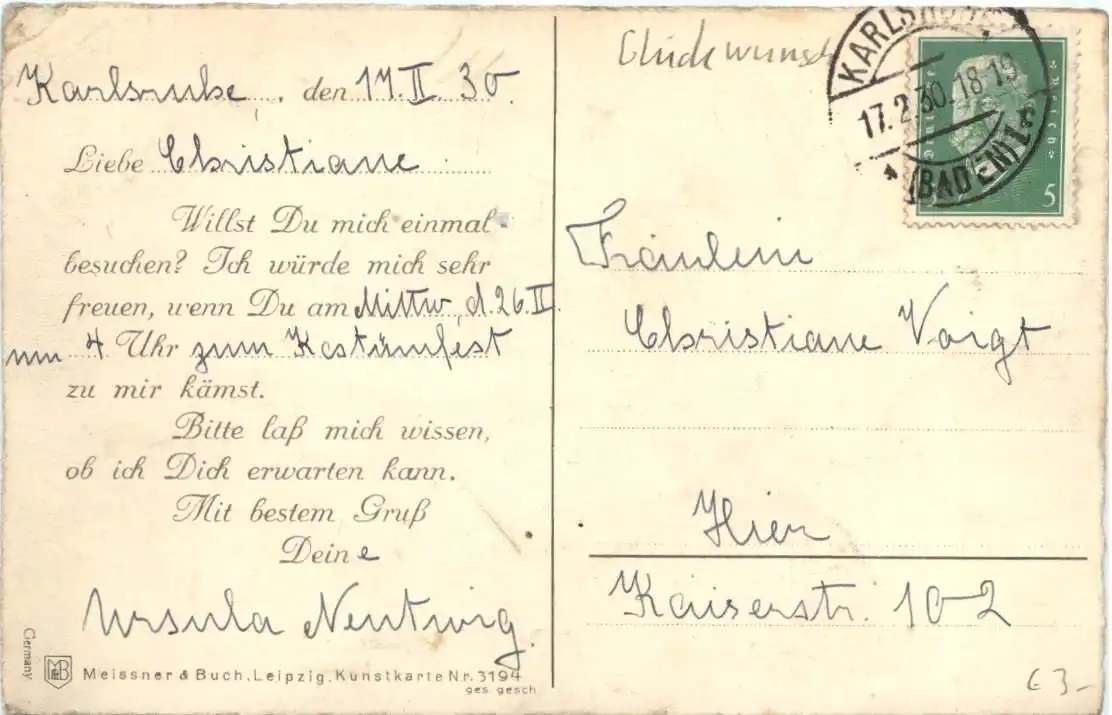 Karlsruhe, den 17.II 30.
Liebe Christiane
Willst Du mich einmal
besuchen? Ich würde mich sehr
freuen, wenn Du am Mittw, d. 26. II
um 4 Uhr zum Kostümfest
zu mir kämst.
Bitte laß mich wissen,
ob ich Dich erwarten kann.
Mit bestem Gruß
Deine
Ursula Nentwig
Germany
MB
Meissner & Buch, Leipzig. Kunstkarte Nr. 3194
ges. gesch
Glückwunsch
KARLSRUHE
17.2.30.18-19
(BADEN)
Deutsches Reich
5
Fräulein
Christiane Voigt
Hier
Kaiserstr. 102
€ 3-